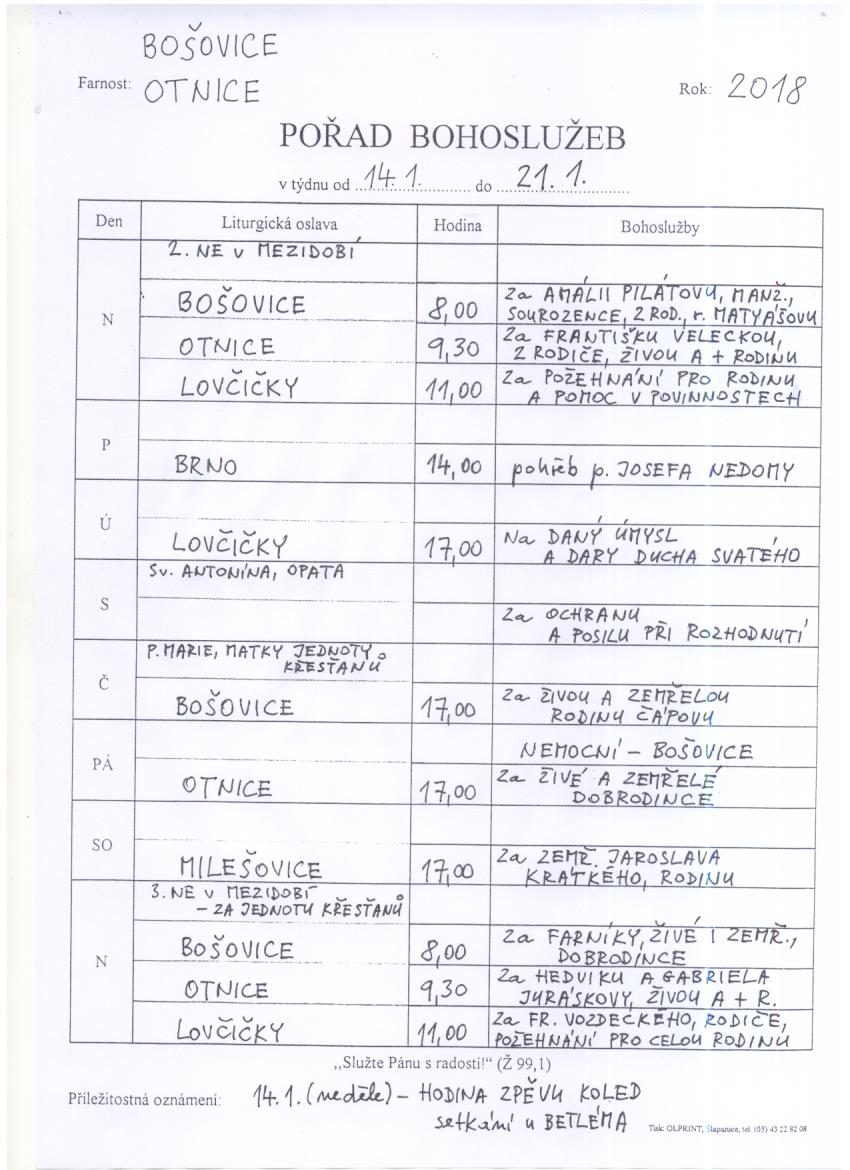 BOŠOVICE
Farnost: OTNICE Rok: 2018
POŘAD BOHOSLUŽEB
v týdnu od 14.1. do 21.1.
Den Liturgická oslava Hodina Bohoslužby
2. NE V MEZIDOBÍ
N
BOŠOVICE 8,00 Za AMÁLII PILÁTOVU, MANŽ.,
SOUROZENCE, 2 ROD., r. MATYÁŠOVU
OTNICE 9,30 Za FRANTIŠKU VELECKOU,
2 RODIČE, ŽIVOU A + RODINU
LOVČIČKY 11,00 Za POŽEHNÁNÍ PRO RODINU
A POMOC V POVINNOSTECH
P
BRNO 14,00 pohřeb p. JOSEFA NEDOMY
Ú
LOVČIČKY 17,00 Na DANÝ ÚMYSL
A DARY DUCHA SVATÉHO
Sv. ANTONÍNA, OPATA
S
Za OCHRANU
A POSILU PŘI ROZHODNUTÍ
P. MARIE, MATKY JEDNOTY
KŘESŤANŮ
Č
BOŠOVICE 17,00 Za ŽIVOU A ZEMŘELOU
RODINU ČÁPOVU
NEMOCNÍ – BOŠOVICE
PÁ
OTNICE 17,00 Za ŽIVÉ A ZEMŘELÉ
DOBRODINCE
SO
MILEŠOVICE 17,00 Za ZEMŘ. JAROSLAVA
KRÁTKÉHO, RODINU
3. NE V MEZIDOBÍ
– ZA JEDNOTU KŘESŤANŮ
N
BOŠOVICE 8,00 Za FARNÍKY, ŽIVÉ I ZEMŘ.,
DOBRODINCE
OTNICE 9,30 Za HEDVIKU A GABRIELA
JURÁSKOVY, ŽIVOU A + R.
LOVČIČKY 11,00 Za FR. VOZDECKÉHO, RODIČE,
POŽEHNÁNÍ PRO CELOU RODINU
„Služte Pánu s radostí!“ (Ž 99,1)
Příležitostná oznámení: 14.1. (neděle) – HODINA ZPĚVU KOLED
setkání u BETLÉMA
Tisk: OLPRINT, Šlapanice, tel. (05) 43 22 82 08